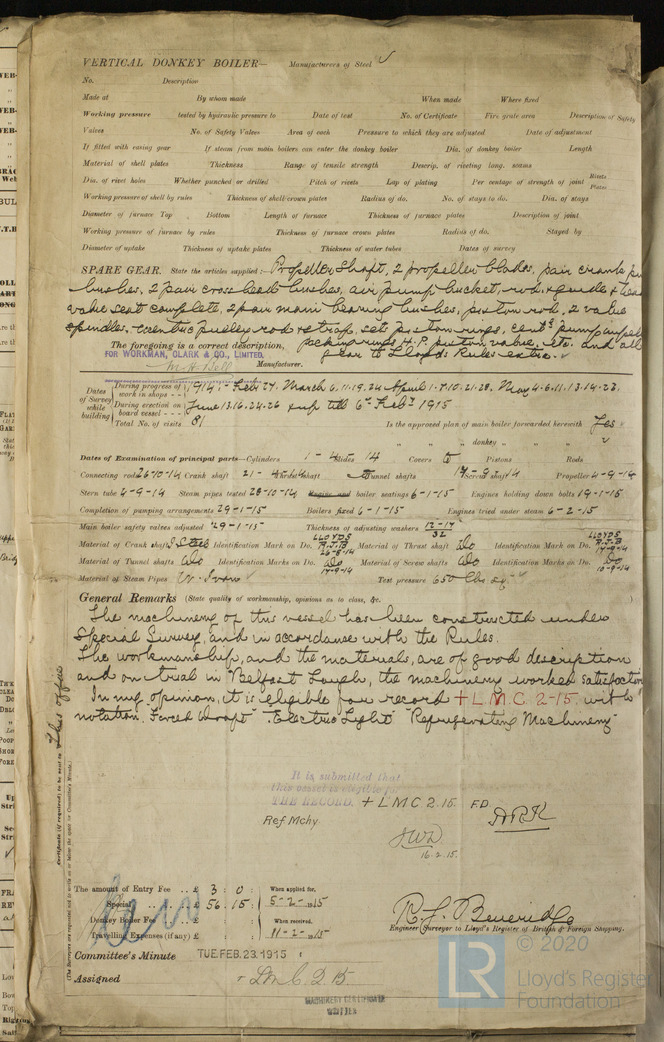 VERTICAL DONKEY BOILER— Manufacturers of Steel
No. Description
Made at By whom made When made Where fixed
Working pressure tested by hydraulic pressure to Date of test No. of Certificate Fire grate area Description of Safety
Valves No. of Safety Valves Area of each Pressure to which they are adjusted Date of adjustment
If fitted with easing gear If steam from main boilers can enter the donkey boiler Dia. of donkey boiler Length
Material of shell plates Thickness Range of tensile strength Descrip. of riveting long. seams
Dia. of rivet holes Whether punched or drilled Pitch of rivets Lap of plating Per centage of strength of joint Rivets Plates
Working pressure of shell by rules Thickness of shell crown plates Radius of do. No. of stays to do. Dia. of stays
Diameter of furnace Top Bottom Length of furnace Thickness of furnace plates Description of joint
Working pressure of furnace by rules Thickness of furnace crown plates Radius of do. Stayed by
Diameter of uptake Thickness of uptake plates Thickness of water tubes Dates of survey
SPARE GEAR. State the articles supplied:— Propeller Shaft, 2 propeller blades, pair crank pin
bushes, 2 pair cross heads bushes, air pump bucket, rod, & guide &
valve seat complete, 2 pair main bearing bushes, piston rod, 2 valve
spindles. eccentric pulley rod & strap, sets piston rings, centl pump
packing rings H.P. piston valve. etc. and all
The foregoing is a correct description, gear to Lloyds Rules extra.
FOR WORKMAN, CLARK & CO., LIMITED.
Manufacturer.
Dates of Survey while building
During progress of work in shops - - 1914:- Feb 27. March 6.11.19.24 April 1.7.10.21.28. May 4.6.11.13.14.23.
During erection on board vessel - - - June 13.16.24.26 & up till 6th Feby 1915
Total No. of visits 81 Is the approved plan of main boiler forwarded herewith Yes
" " " donkey "
Dates of Examination of principal parts—Cylinders 1-4-14 Slides Covers Pistons Rods
Connecting rods 26-10-14 Crank shaft 21- Thrust shaft Tunnel shafts Screw shaft Propeller 4-9-14
Stern tube 4-9-14 Steam pipes tested 28-10-14 Engine and boiler seatings 6-1-15 Engines holding down bolts 19-1-15
Completion of pumping arrangements 29-1-15 Boilers fixed 6-1-15 Engines tried under steam 6-2-15
Main boiler safety valves adjusted 29-1-15 Thickness of adjusting washers 12-17 32
Material of Crank shaft I Steel Identification Mark on Do. LLOYDS R.J.B 26-8-14 Material of Thrust shaft Do Identification Mark on Do. LLOYDS R.J.B 14-9-14
Material of Tunnel shafts Do Identification Marks on Do. Do 14-9-14 Material of Screw shafts Do Identification Marks on Do. Do 10-9-14
Material of Steam Pipes W. Iron Test pressure 650 lbs sq."
General Remarks (State quality of workmanship, opinions as to class, &c.
The machinery of this vessel has been constructed under
Special Survey, and in accordance with the Rules.
The workmanship, and the materials, are of good description
and on trial in Belfast Lough, the machinery worked satisfactory
In my opinion, it is eligible for record + L.M.C. 2-15. with
notation. Forced Draft" "Electric Light" "Refrigerating Machinery"
It is submitted that
this vessel is eligible for
THE RECORD. + LMC 2.15. FD
Ref Mchy
JWD
16.2.15.
ARK
The amount of Entry Fee .. £ 3 : 0 : When applied for,
Special .. .. £ 56.15 : 5-2-1915
Donkey Boiler Fee .. .. £ : : When received,
Travelling Expenses (if any) £ : : 11-2-1915
R. J. Beveridge
Engineer Surveyor to Lloyd's Register of British & Foreign Shipping.
Committee's Minute TUE.FEB.23.1915
Assigned + LMC 2.15
MACHINERY CERTIFICATE
WRITTEN
© 2020
LR
Lloyd's Register
Foundation